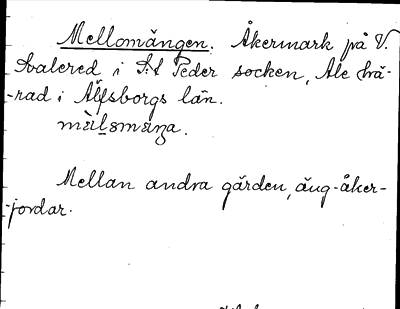 Mellomängen. Åkermark på V.
Avalered i S:t Peder socken, Ale hä-
-rad i Älfsborgs län.
Mellan andra gärden, äng-åker-
-jordar.